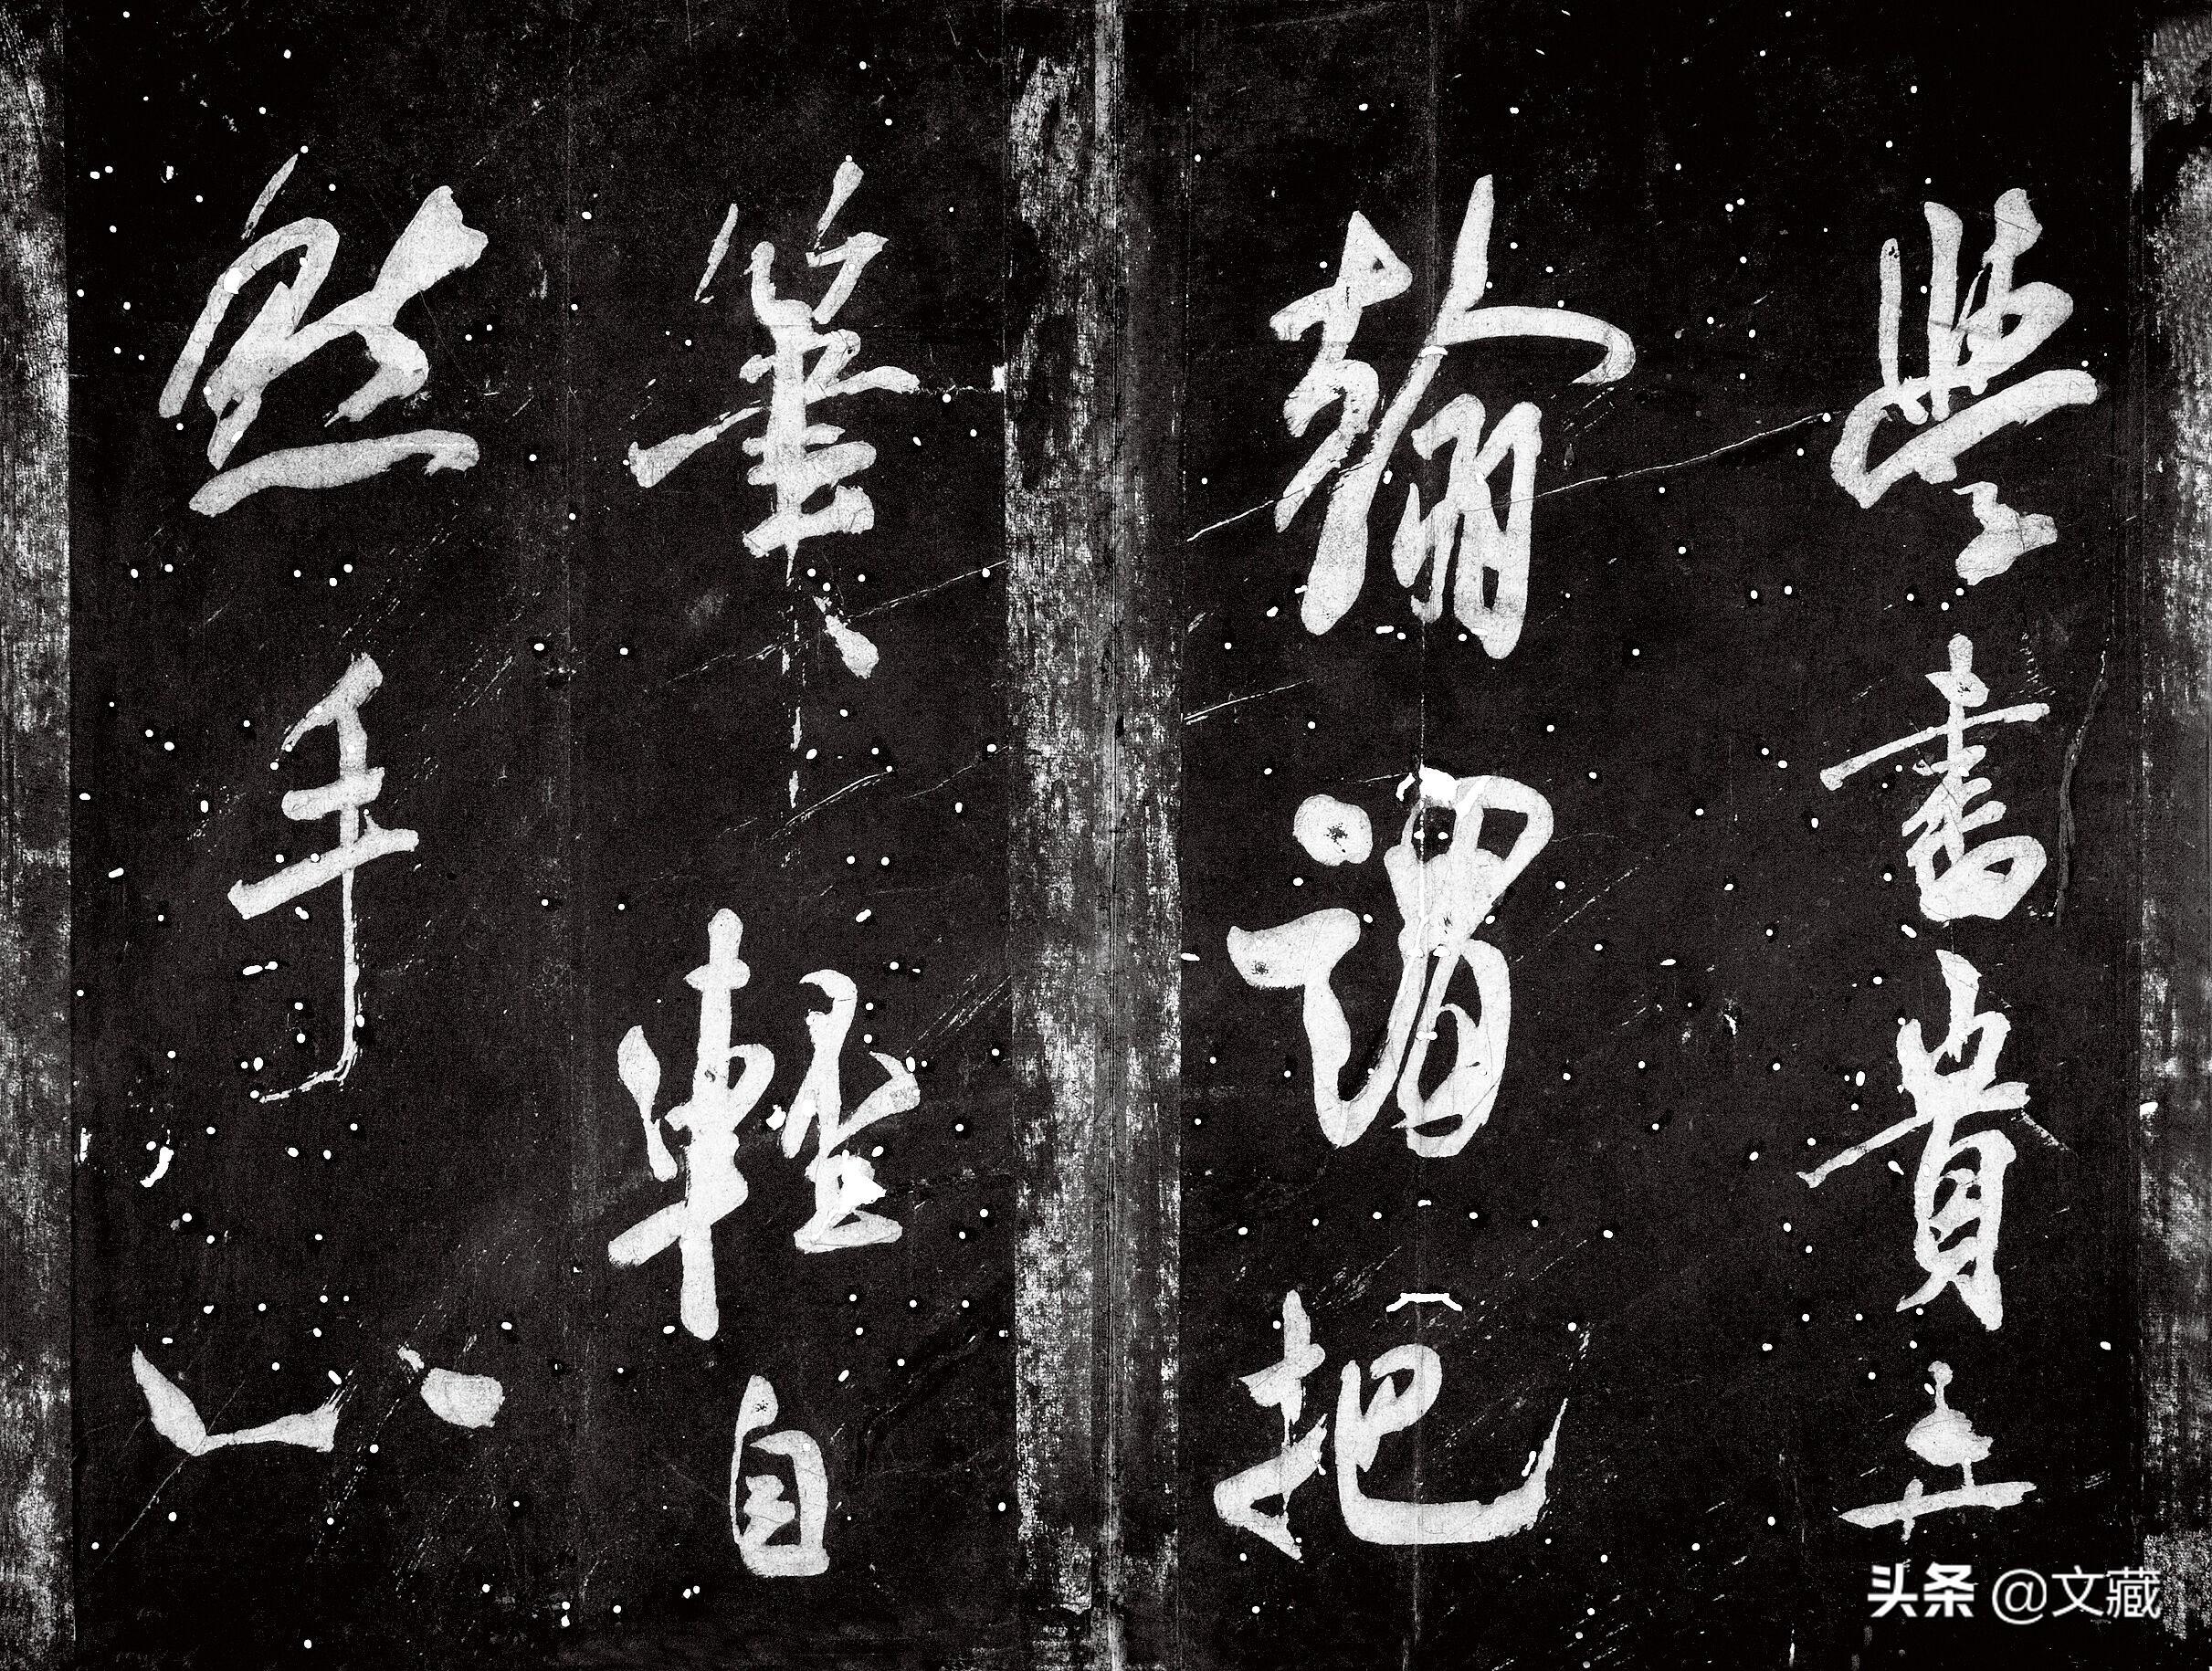 學書貴弄
翰謂把
筆輕自
然手心
头条 @文藏